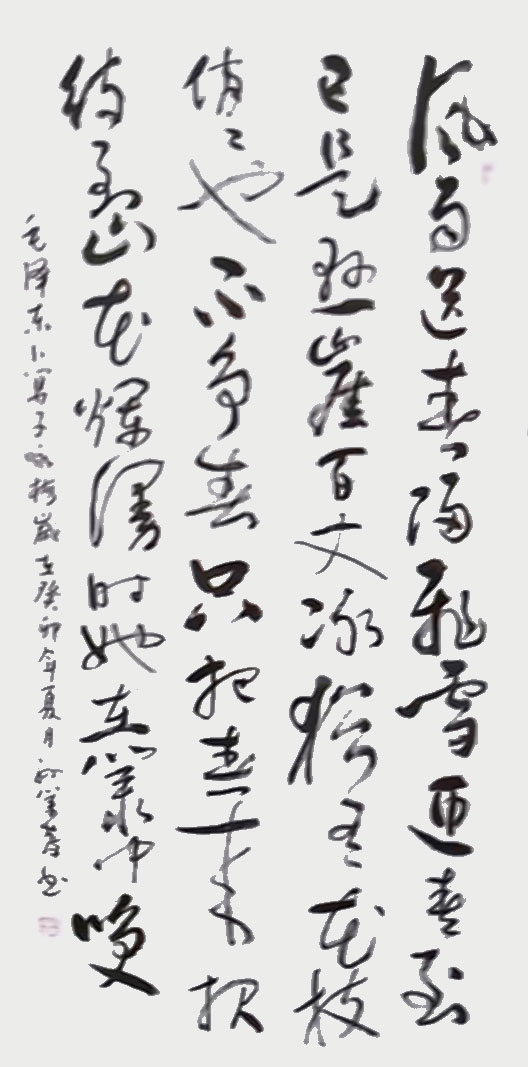 风雨送春归飛雪迎春到
已是懸崖百丈冰猶有花枝
俏々也不争春只把春来报
待到山花爛漫时她在叢中咲
毛泽东卜算子咏梅歲在癸卯年夏月书